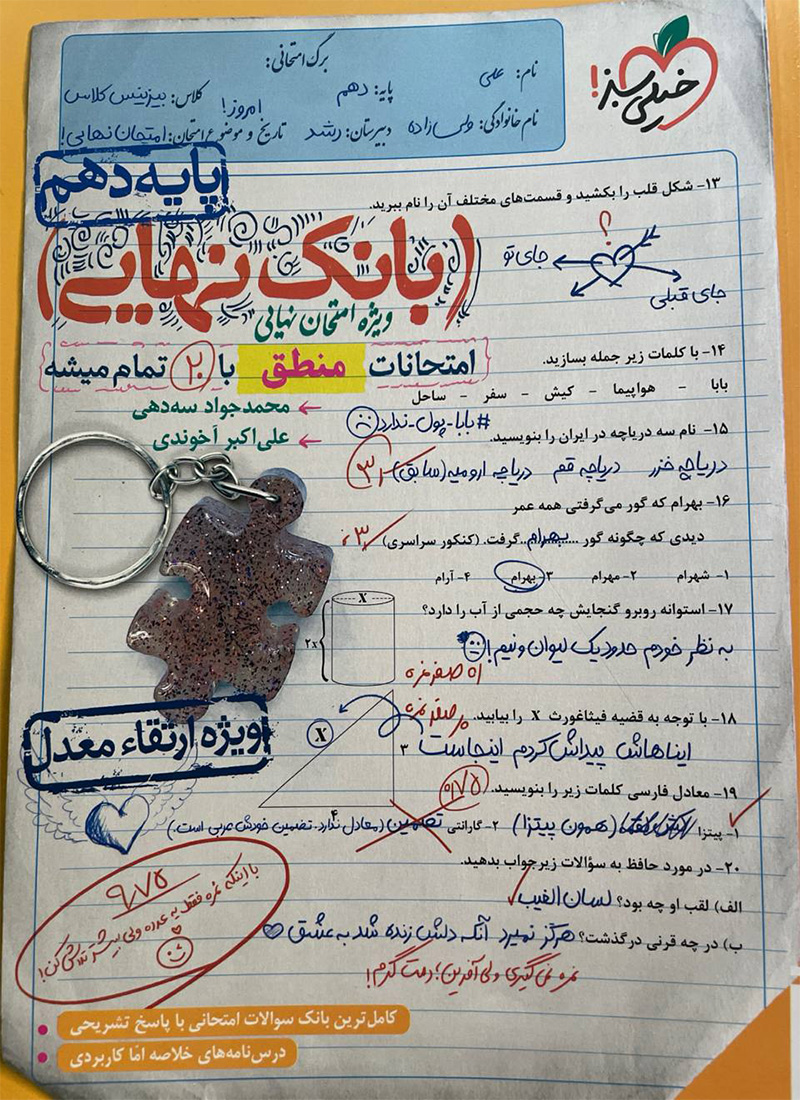 خیلی سبز!
برگ امتحانی:
نام: علی
پایه: دهم
کلاس: بیزینس کلاس
نام خانوادگی: ولی‌زاده
دبیرستان: رشد
تاریخ و موضوع امتحان: امتحان نهایی!
امروز!
پایه دهم
(بانک نهایی)
ویژه امتحان نهایی
امتحانات منطق با ۲۰ تمام میشه
محمدجواد سه‌دهی
علی‌اکبر آخوندی
۱۳- شکل قلب را بکشید و قسمت‌های مختلف آن را نام ببرید.
؟
جای تو
جای قبلی
۱۴- با کلمات زیر جمله بسازید.
بابا - هواپیما - کیش - سفر - ساحل
#بابا-پول-ندارد
۱۵- نام سه دریاچه در ایران را بنویسید.
دریاچه خزر دریاچه قم دریاچه ارومیه (سابق)
۱۶- بهرام که گور می‌گرفتی همه عمر
دیدی که چگونه گور ....بهرام..گرفت. (کنکور سراسری)
۱- شهرام ۲- مهرام ۳- بهرام ۴- آرام
۱۷- استوانه روبرو گنجایش چه حجمی از آب را دارد؟
X
2x
به نظر خودم حدود یک لیوان و نیم!
۱۸- با توجه به قضیه فیثاغورث X را بیابید.
صفر نمره
X
۳
۴
ایناهاش پیداش کردم اینجاست
۱۹- معادل فارسی کلمات زیر را بنویسید.
۰/۷۵
۱- پیتزا (همون پیتزا) ۲- گارانتی تضمین (معادل ندارد. تضمین خودش عربی است.)
۲۰- در مورد حافظ به سؤالات زیر جواب بدهید.
الف) لقب او چه بود؟ لسان الغیب
ب) در چه قرنی درگذشت؟ هرگز نمیرد آنکه دلش زنده شد به عشق
نمره نمی‌گیری ولی آفرین؛ دمت گرم!
ویژه ارتقاء معدل
۹/۷۵
با اینکه نمره فقط یه عدده ولی بیشتر تلاش کن!
کامل‌ترین بانک سوالات امتحانی با پاسخ تشریحی
درس‌نامه‌های خلاصه امّا کاربردی